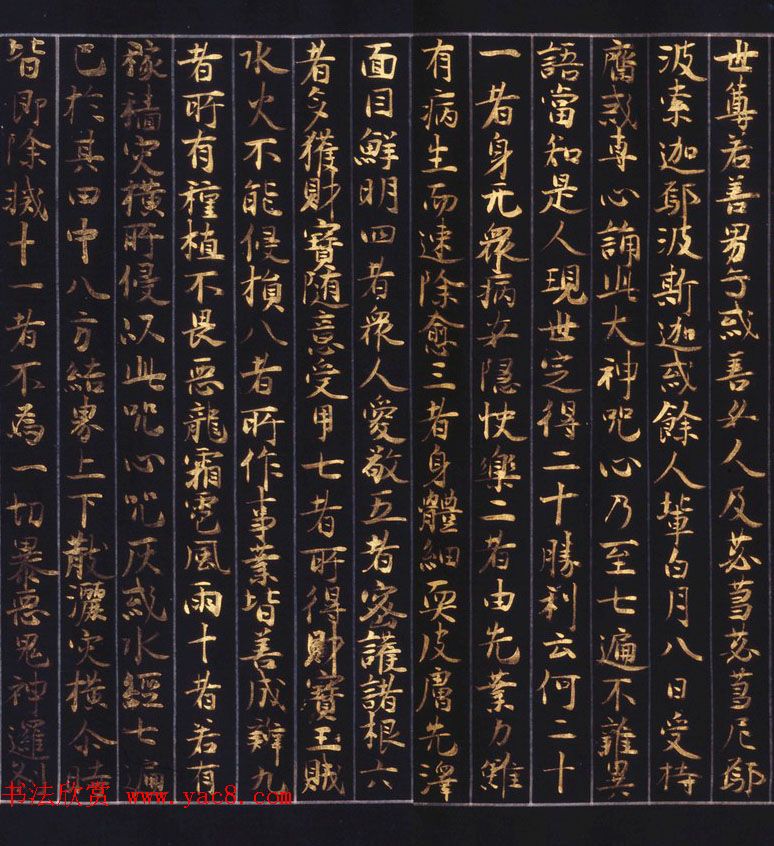 世尊若善男子或善女人及苾蒭苾蒭尼鄔
波索迦鄔波斯迦或餘人輩白月八日受持
齋或專心誦此大神咒心乃至七遍不雜異
語當知是人現世定得二十勝利云何二十
一者身无眾病安隱快樂二者由先業力雖
有病生而速除愈三者身體細耎皮膚光澤
面目鮮明四者眾人愛敬五者密護諸根六
者多獲財寶隨意受用七者所得財寶王賊
水火不能侵損八者所作事業皆善成辦九
者所有種植不畏惡龍霜雹風雨十者若有
稼穡灾橫所侵以此咒心咒灰或水經七遍
已於其田中八方結界上下散灑灾橫尒時
皆即除滅十一者不為一切暴惡鬼神邏剎
书法欣赏 www.yac8.com